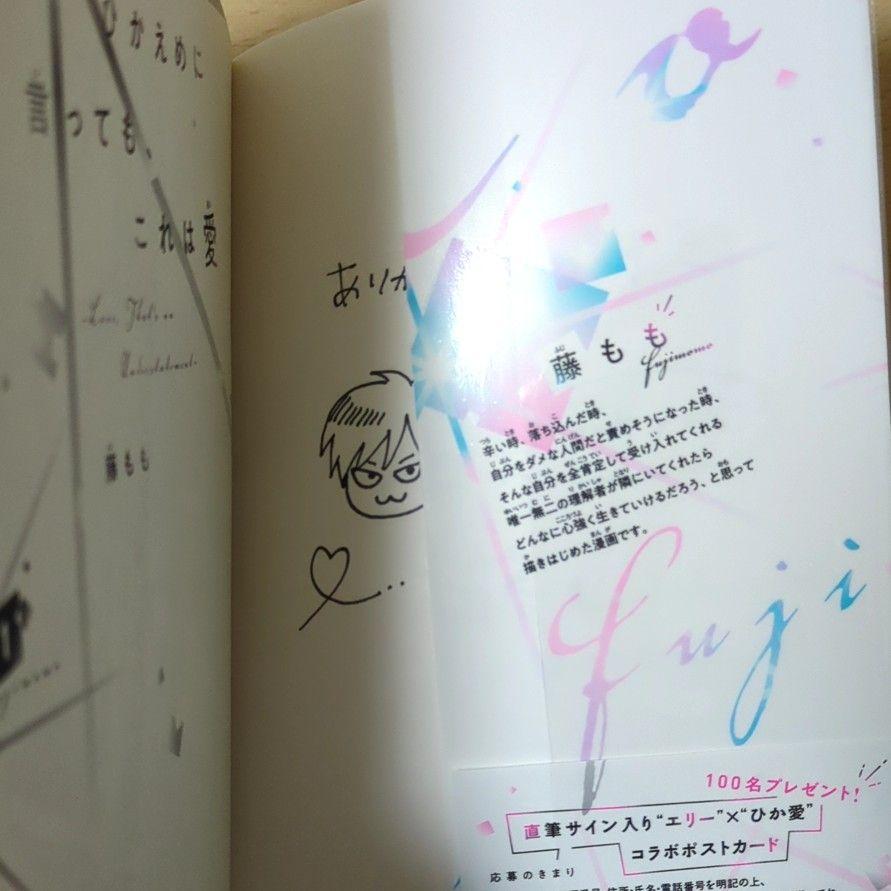 ひかえめに
っても、
これは愛
藤もも
ありが
藤もも
fujimomo
辛い時、落ち込んだ時、
自分をダメな人間だと責めそうになった時、
そんな自分を全肯定して受け入れてくれる
唯一無二の理解者が隣にいてくれたら
どんなに心強く生きていけるだろう、と思って
描きはじめた漫画です。
fuji
100名プレゼント!
直筆サイン入り“エリー”×“ひか愛”
コラボポストカード
応募のきまり
住所・氏名・電話番号を明記の上、